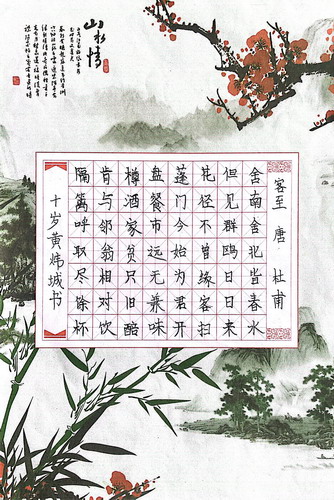 山水情
客至 唐 杜甫
舍南舍北皆春水
但见群鸥日日来
花径不曾缘客扫
蓬门今始为君开
盘餐市远无兼味
樽酒家贫只旧醅
肯与邻翁相对饮
隔篱呼取尽馀杯
十岁黄炜城书